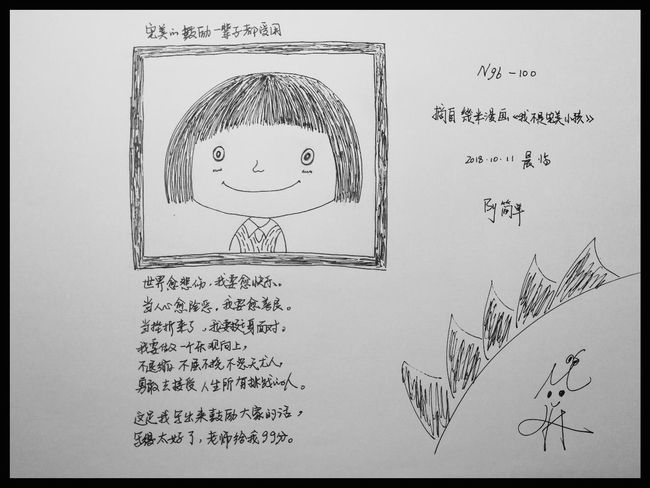 完美的鼓励一辈子都受用
世界愈悲伤，我要愈快乐。
当人心愈险恶，我要愈善良。
当挫折来了，我要挺身面对。
我要做一个乐观向上，
不退缩 不屈不挠 不怨天尤人，
勇敢去接受人生所有挑战的人。
这是我写出来鼓励大家的话，
写得太好了，老师给我99分。
N96-100
摘自 几米漫画《我不是完美小孩》
2018.10.11 晨临
By 简单